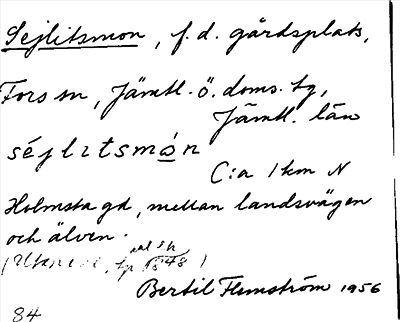 Sejlitsmon, f.d. gårdsplats,
Fors sn, Jämtl. ö. doms. tg,
Jämtl. län
séjlıtsmòn
C:a 1 km N
Holmsta gd, mellan landsvägen
och älven.
1848)
Bertil Flemström 1956
84